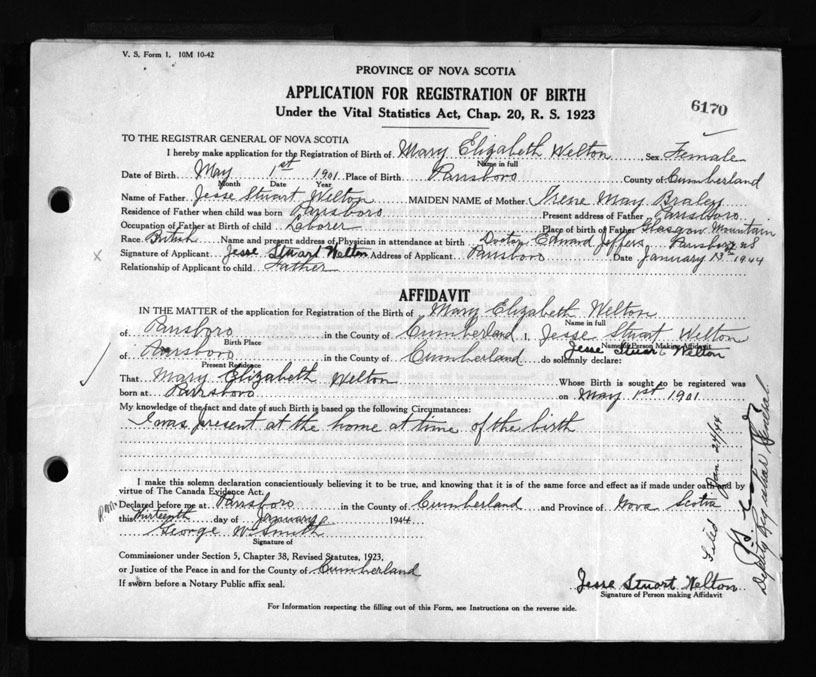 V. S. Form 1. 10M 10-42
PROVINCE OF NOVA SCOTIA
APPLICATION FOR REGISTRATION OF BIRTH
6170
Under the Vital Statistics Act, Chap. 20, R. S. 1923
TO THE REGISTRAR GENERAL OF NOVA SCOTIA
I hereby make application for the Registration of Birth of Mary Elizabeth Welton Sex Female
Name in full
Date of Birth May 1st 1901 Place of Birth Parrsboro County of Cumberland
Month Date Year
Name of Father Jesse Stuart Welton MAIDEN NAME of Mother Irene May Braley
Residence of Father when child was born Parrsboro Present address of Father Parrsboro
Occupation of Father at Birth of child Laborer Place of birth of Father Glasgow Mountain
Race British Name and present address of Physician in attendance at birth Doctor Edward Jeffers Parrsboro NS
Signature of Applicant Jesse Stuart Welton Address of Applicant Parrsboro Date January 13th 1944
Relationship of Applicant to child Father
AFFIDAVIT
IN THE MATTER of the application for Registration of the Birth of Mary Elizabeth Welton
Name in full
of Parrsboro in the County of Cumberland I, Jesse Stuart Welton
Birth Place Name of Person Making Affidavit
Jesse Stuart Welton
of Parrsboro in the County of Cumberland do solemnly declare:
Present Residence
That Mary Elizabeth Welton Whose Birth is sought to be registered was
born at Parrsboro on May 1st 1901
My knowledge of the fact and date of such Birth is based on the following Circumstances:
I was present at the home at time of the birth
I make this solemn declaration conscientiously believing it to be true, and knowing that it is of the same force and effect as if made under oath and by
virtue of The Canada Evidence Act.
Declared before me at Parrsboro in the County of Cumberland and Province of Nova Scotia
this thirteenth day of January 1944
George W Smith
Signature of
Commissioner under Section 5, Chapter 38, Revised Statutes, 1923,
or Justice of the Peace in and for the County of Cumberland
If sworn before a Notary Public affix seal.
Jesse Stuart Welton
Signature of Person making Affidavit
For Information respecting the filling out of this Form, see Instructions on the reverse side.
Filed Jan. 24/44
Deputy Registrar General